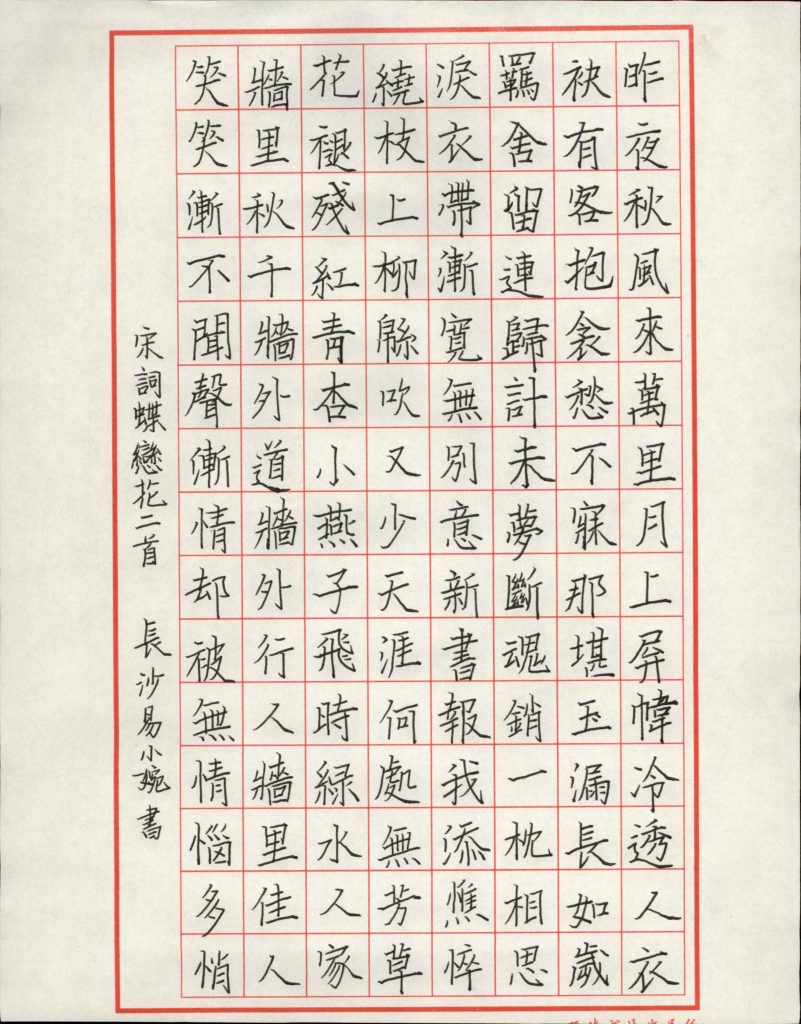 昨夜秋風來萬里月上屏幃冷透人衣
袂有客抱衾愁不寐那堪玉漏長如歲
羈舍留連歸計未夢斷魂銷一枕相思
淚衣帶漸寬無別意新書報我添憔悴
繞枝上柳緜吹又少天涯何處無芳草
花褪殘紅青杏小燕子飛時緑水人家
牆里秋千牆外道牆外行人牆里佳人
笑笑漸不聞聲漸情却被無情惱多悄
宋詞蝶戀花二首 長沙易小婉書